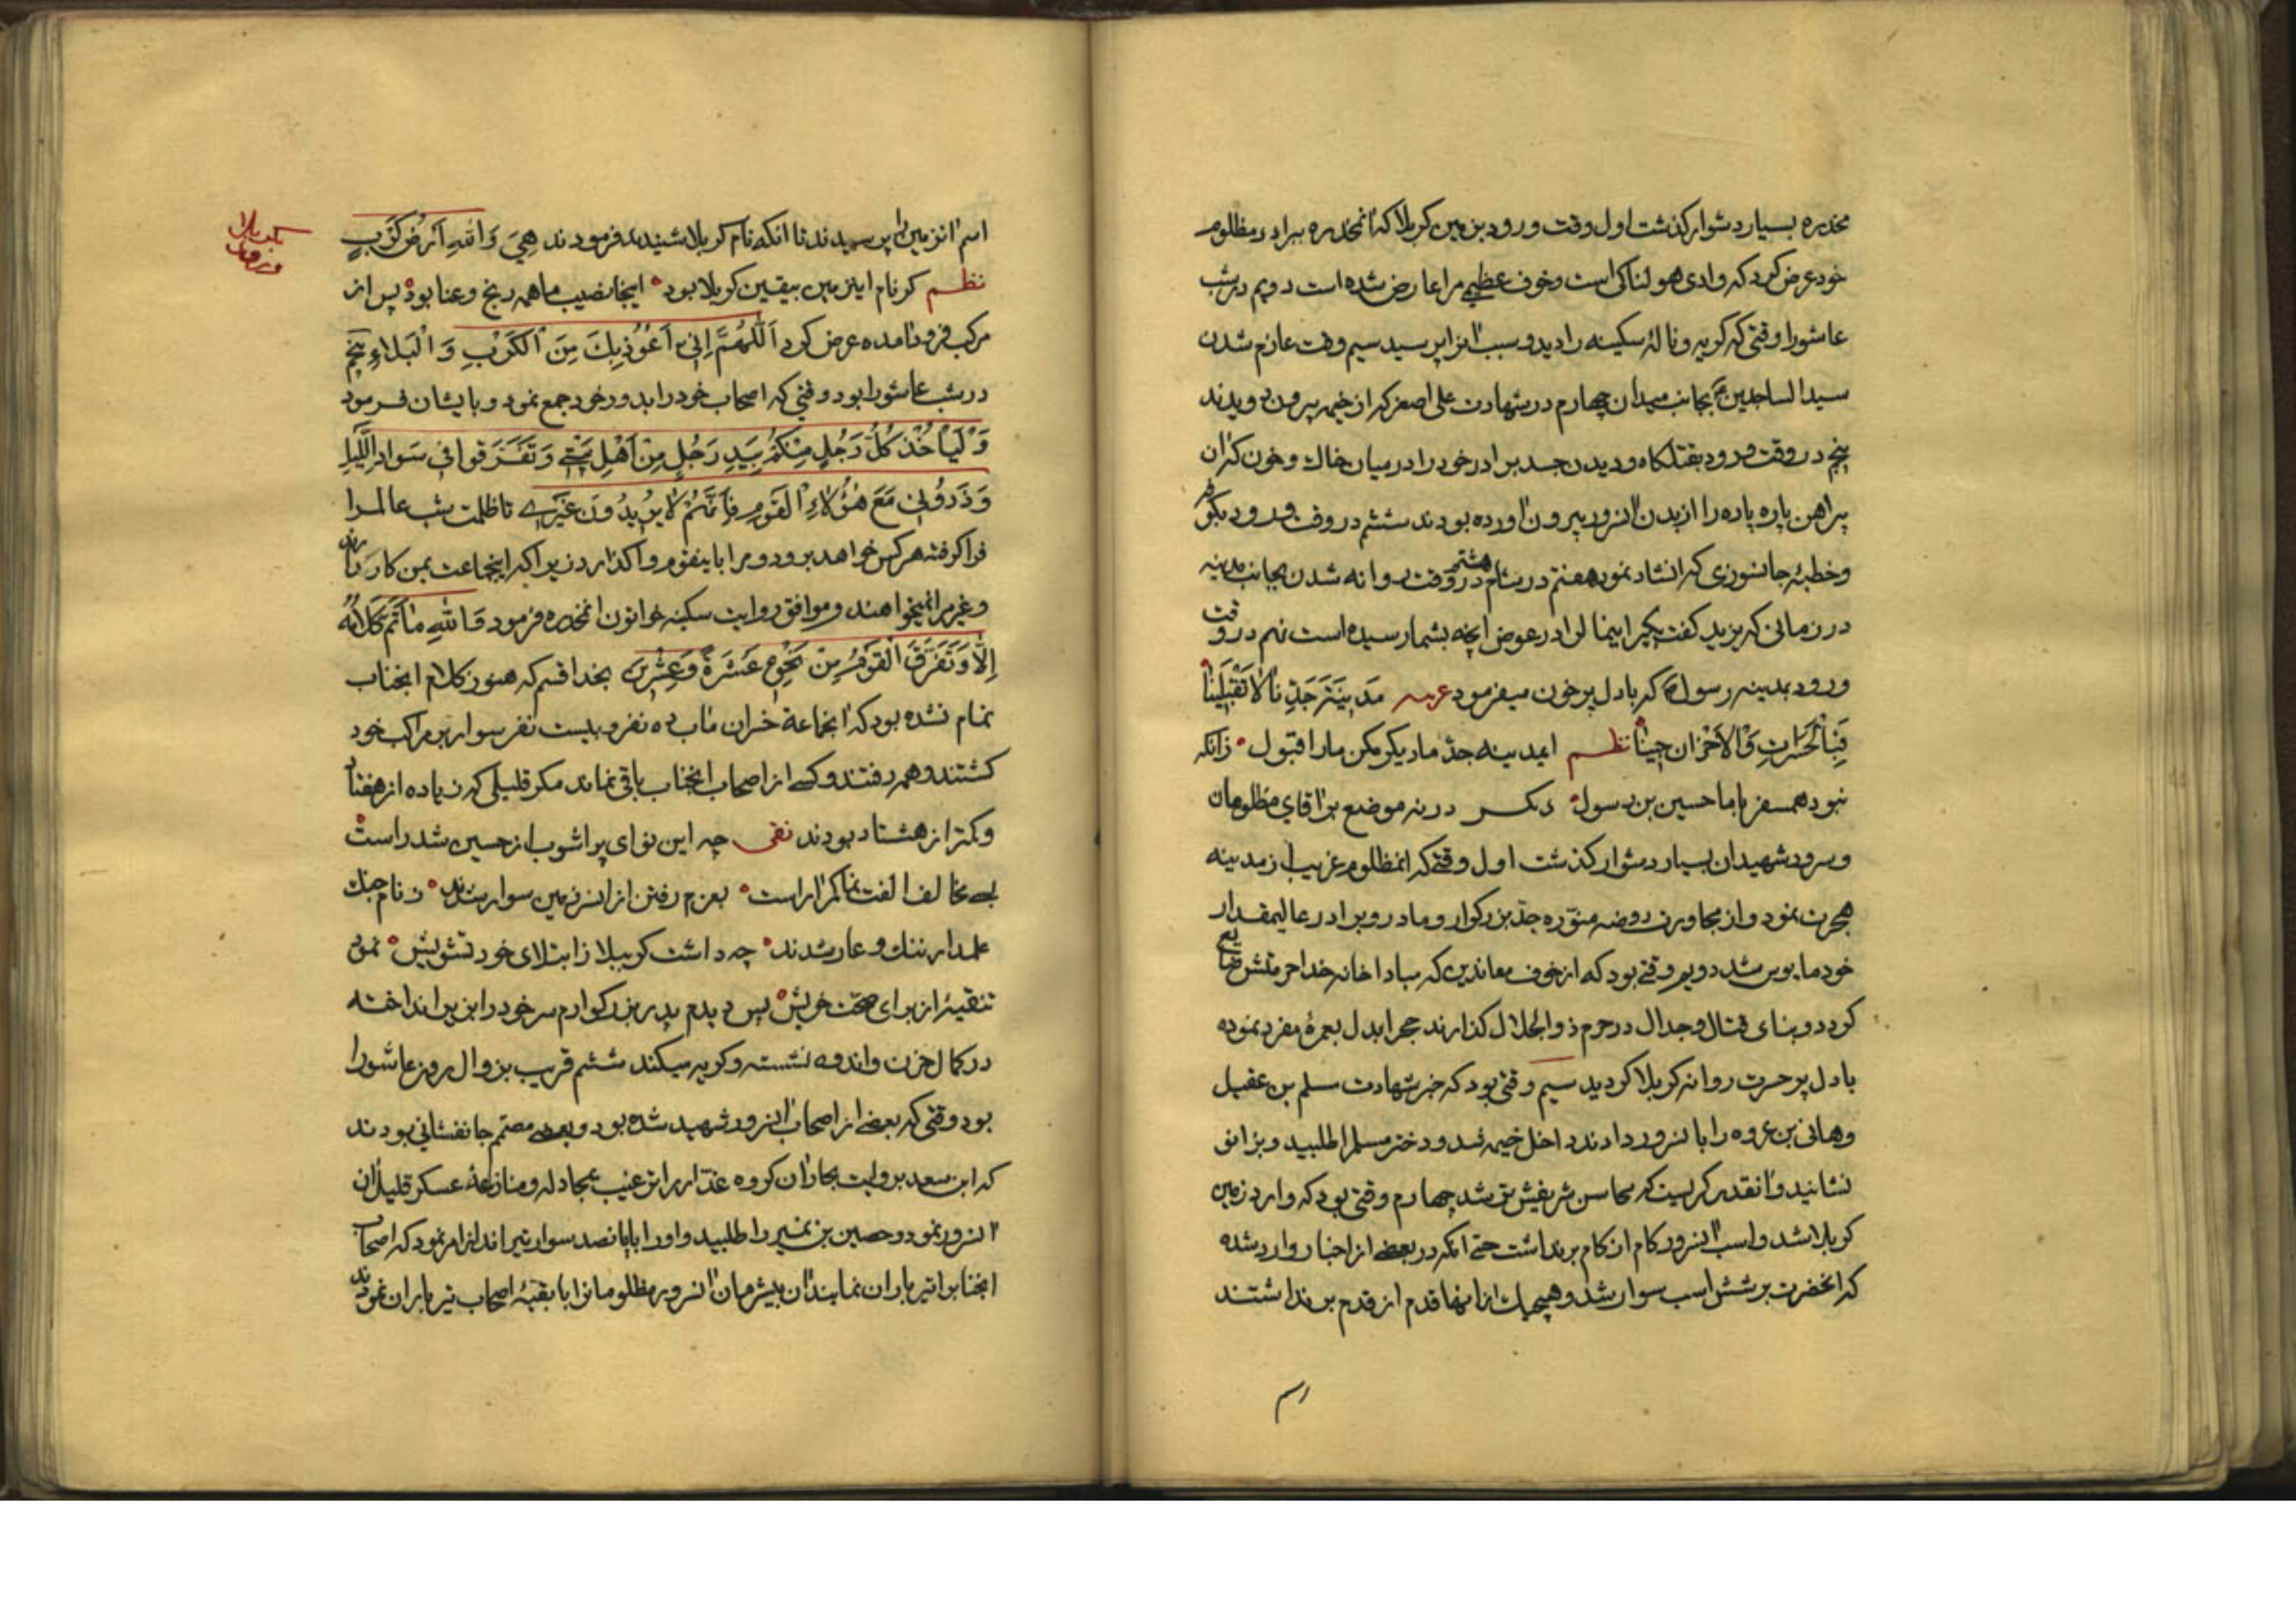 مخدره بسیار دشوار کذشت اول وقت ورود بزمین کربلا که انمخدره ببرادر مظلوم
خود عرض کرد که وادی هولناکی است وخوف عظیمی مرا عارض شده است دویم در شب
عاشورا وقتی که کریه و نالهٔ سکینه را دید و سبب انرا پرسید سیم وقت عازم شدن
سید الساجدین بجانب میدان چهارم در شهادت علی اصغر که از خیمه بیرون دویدند
پنجم در وقت ورود بقتلکاه و دیدن جسد برادر خود را در میان خاک و خون که ان
پراهن پاره پاره را از بدن انسرور بیرون اورده بودند ششم در وقت ورود بکوفه
وخطبهٔ جانسوزی که انشاد نمود هفتم در شام هشتم در وقت روانه شدن بجانب مدینه
در زمانی که یزید کفت بکیر اینمال را در عوض انچه بشما رسیده است نهم در وقت
ورود بمدینه رسول که بادل پر خون میفرمود عربیه مَدینَةَ جَدِّنا لا تَقْبَلینا
فَبِالْحَسَراتِ وَالْاَحْزانِ جِینا نظم ایمدینه جدّ ما دیکر مکن مارا قبول زانکه
نبود همسفر باما حسین بن رسول دیکر در نه موضع بر اقای مظلومان
و سرور شهیدان بسیار دشوار کذشت اول وقتی که انمظلوم غریب از مدینه
هجرت نمود و از مجاورت روضه منوّره جدّ بزرکوار و مادر و برادر عالیمقدار
خود مایوس شد دویم وقتی بود که از خوف معاندین که مبادا خانه خدا حرمتش ضایع
کردد و بنای قتال و جدال در حرم ذو الجلال کذارند حج را بدل بعمرهٔ مفرده نموده
بادل پر حسرت روانه کربلا کردید سیم وقتی بود که خبر شهادت مسلم بن عقیل
وهانی بن عروه را بانسرور دادند داخل خیمه شد و دختر مسلم را طلبید و بزانو
نشانید و انقدر کریست که محاسن شریفش تر شد چهارم وقتی بود که وارد زمین
کربلا شد و اسب انسرور کام از کام برنداشت حتی انکه در بعضی از اخبار وارد شده
که انحضرت بر شش اسب سوار شد و هیچیک از انها قدم از قدم بر نداشتند
اسم
اسم انزمین را پرسیدند تا انکه نام کربلا شنیدند فرمودند هِیَ وَاللهِ اَرْضُ کَرْبٍ
نظم کر نام این زمین بیقین کربلا بود اینجا نصیب ما همه رنج و عنا بود پس از
مرکب فرود امده عرض کرد اَللّهُمَّ اِنّی اَعُوذُ بِکَ مِنَ الْکَرْبِ وَ الْبَلاءِ پنجم
در شب عاشورا بود وقتی که اصحاب خود را بدور خود جمع نمود و بایشان فرمود
وَ لْیَاْخُذْ کُلُّ رَجُلٍ مِنْکُمْ بِیَدِ رَجُلٍ مِنْ اَهْلِ بَیْتی وَ تَفَرَّقوا فی سَوادِ اللَّیْلِ
وَ ذَرُونی مَعَ هؤُلاءِ الْقَوْمِ فَاِنَّهُمْ لا یُریدُونَ غَیْری تا ظلمت شب عالمرا
فرا کرفته هرکس خواهد برود و مرا باینقوم واکذارد زیرا که اینجماعت بمن کار دارند
و غیر مرا نمیخواهند و موافق روایت سکینه خواتون انمخدره فرمود فَاللهِ ما تَمَّ کَلامُهُ
اِلّا وَ تَفَرَّقَ الْقَوْمُ مِنْ نَحْوِ عَشَرَةٍ وَ عِشْرینَ بخدا قسم که هنوز کلام انجناب
تمام نشده بود که انجماعة خسران ماب ده نفر و بیست نفر سوار بر مراکب خود
کشتند و همه رفتند و کسی از اصحاب انجناب باقی نماند مکر قلیلی که زیاده از هفتاد
و کمتر از هشتاد بودند نقی چه این نوای پر اشوب از حسین شد راست
بسی مخالف الفت نما کم اراست بعزم رفتن از انسرزمین سوار شدند ز نام جنک
علمدار ننک و عار شدند چه داشت کرببلا ز ابتلای خود تشویش نمود
تنقیهٔ از برای صحّت خویش پس دیدم پدر بزرکوارم سر خود را بزیر انداخته
در کمال حزن و اندوه نشسته و کریه میکند ششم قریب بزوال روز عاشورا
بود وقتی که بعضی از اصحاب انسرور شهید شده بود و بعضی مصمّم جانفشانی بودند
که ابن سعد بروایت بحار ان کروه غدّار را ترغیب بمجادله و منازعهٔ عسکر قلیل ان
انسرور نمود و حصین بن نمیر را طلبید و او را با پانصد سوار تیر انداز امر نمود که اصحاب
انجنابرا تیر باران نمایند ان بیشرمان انسرور مظلومانرا با بقیّهٔ اصحاب تیر باران نمودند